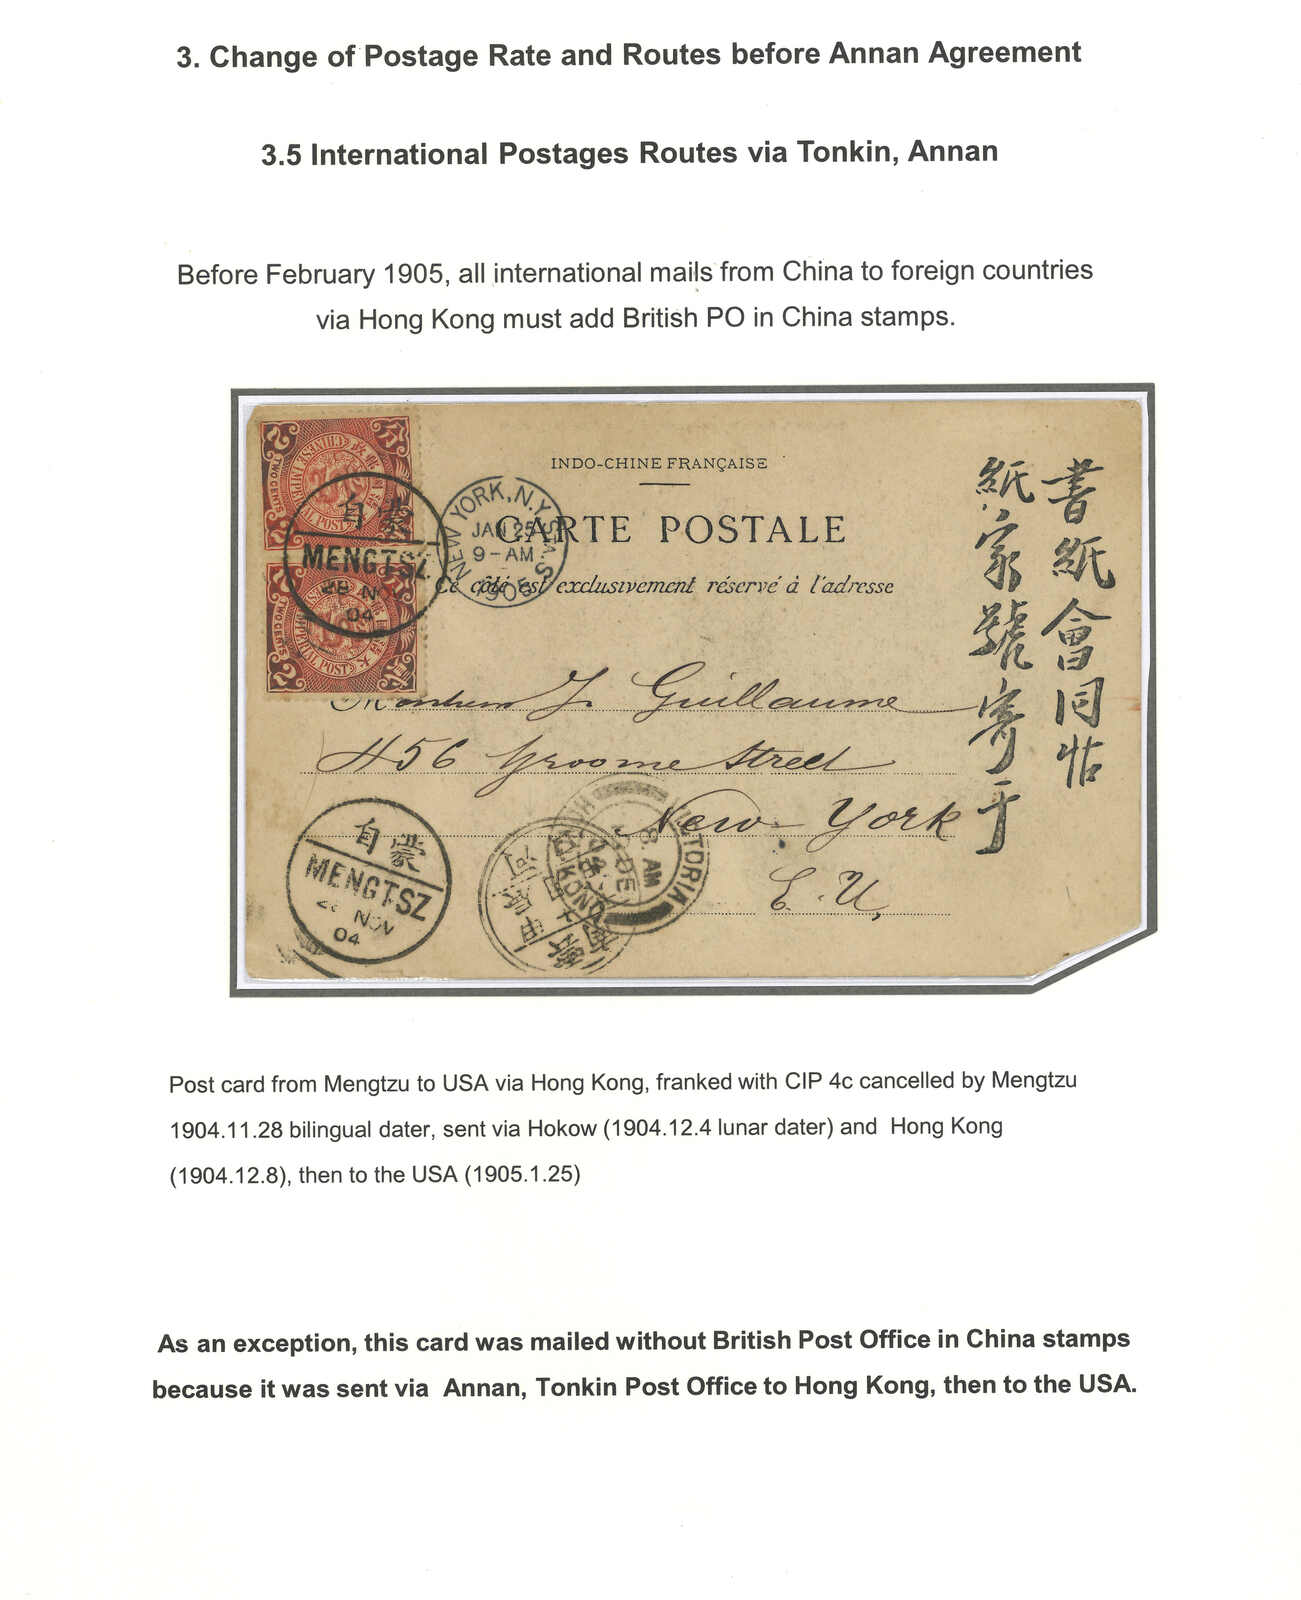 3. Change of Postage Rate and Routes before Annan Agreement
3.5 International Postages Routes via Tonkin, Annan
Before February 1905, all international mails from China to foreign countries
via Hong Kong must add British PO in China stamps.
分
2
TWO CENTS
CHINESE IMPERIAL POST
2
TWO CENTS
IMPERIAL POST
自蒙
MENGTSZ
28 NOV
04
NEW YORK, N.Y. STA. S
JAN 25
9-AM
1905
INDO-CHINE FRANÇAISE
CARTE POSTALE
Ce côté est exclusivement réservé à l'adresse
書紙會同帖
紙家號寄于
J. Guillaume
456 Street
New York
E. U,
自蒙
MENGTSZ
NOV
04
VICTORIA
HONG KONG
8 AM
DE
Post card from Mengtzu to USA via Hong Kong, franked with CIP 4c cancelled by Mengtzu
1904.11.28 bilingual dater, sent via Hokow (1904.12.4 lunar dater) and Hong Kong
(1904.12.8), then to the USA (1905.1.25)
As an exception, this card was mailed without British Post Office in China stamps
because it was sent via Annan, Tonkin Post Office to Hong Kong, then to the USA.